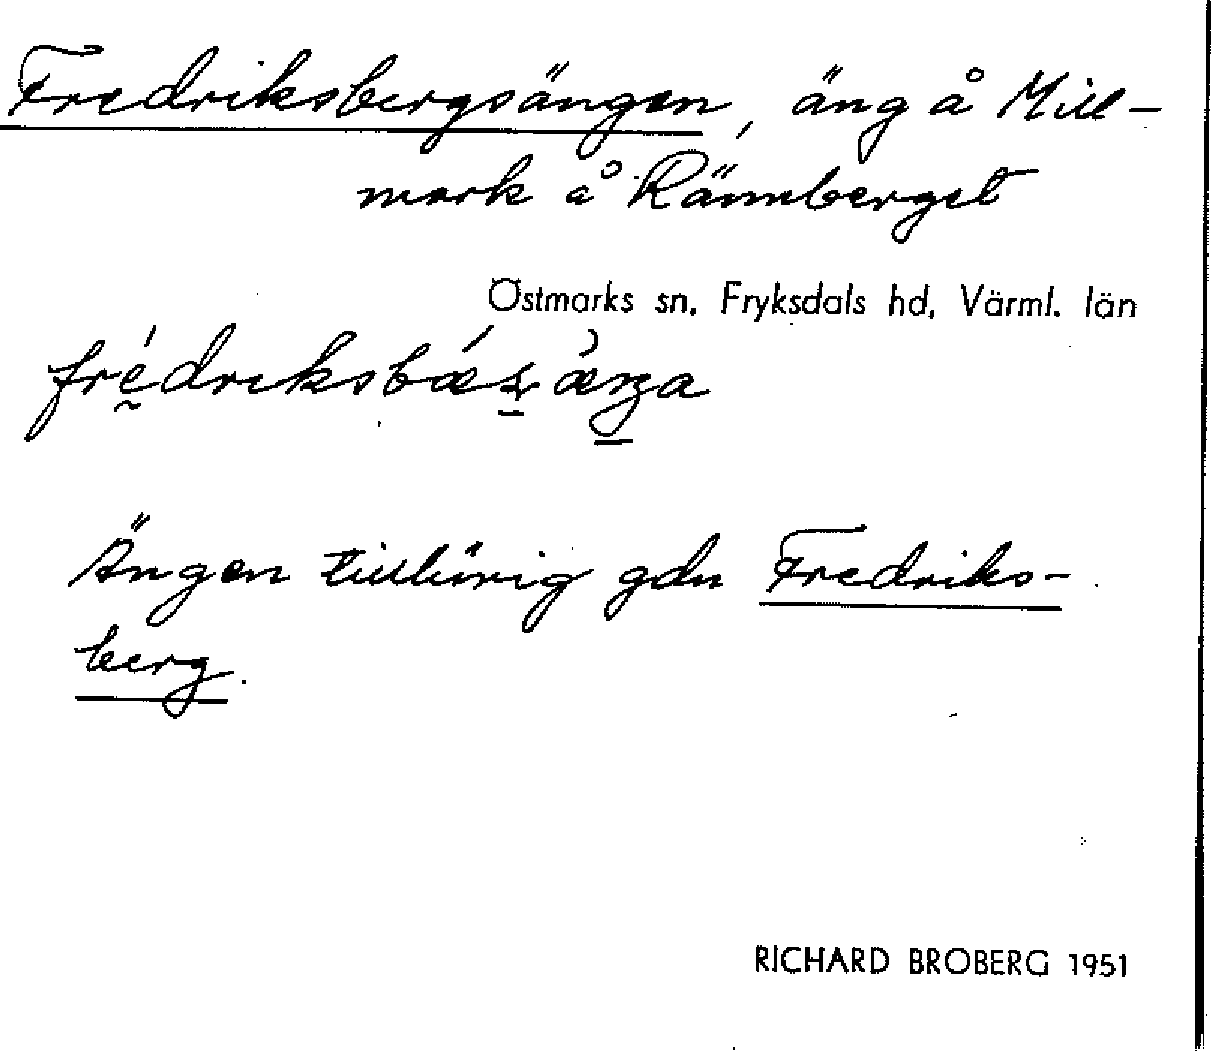 Fredriksbergsängen, äng å Mill-
mark å Rännberget
Östmarks sn, Fryksdals hd, Värml. län
Ängen tillhörig gdn Fredriks-
berg.
RICHARD BROBERG 1951